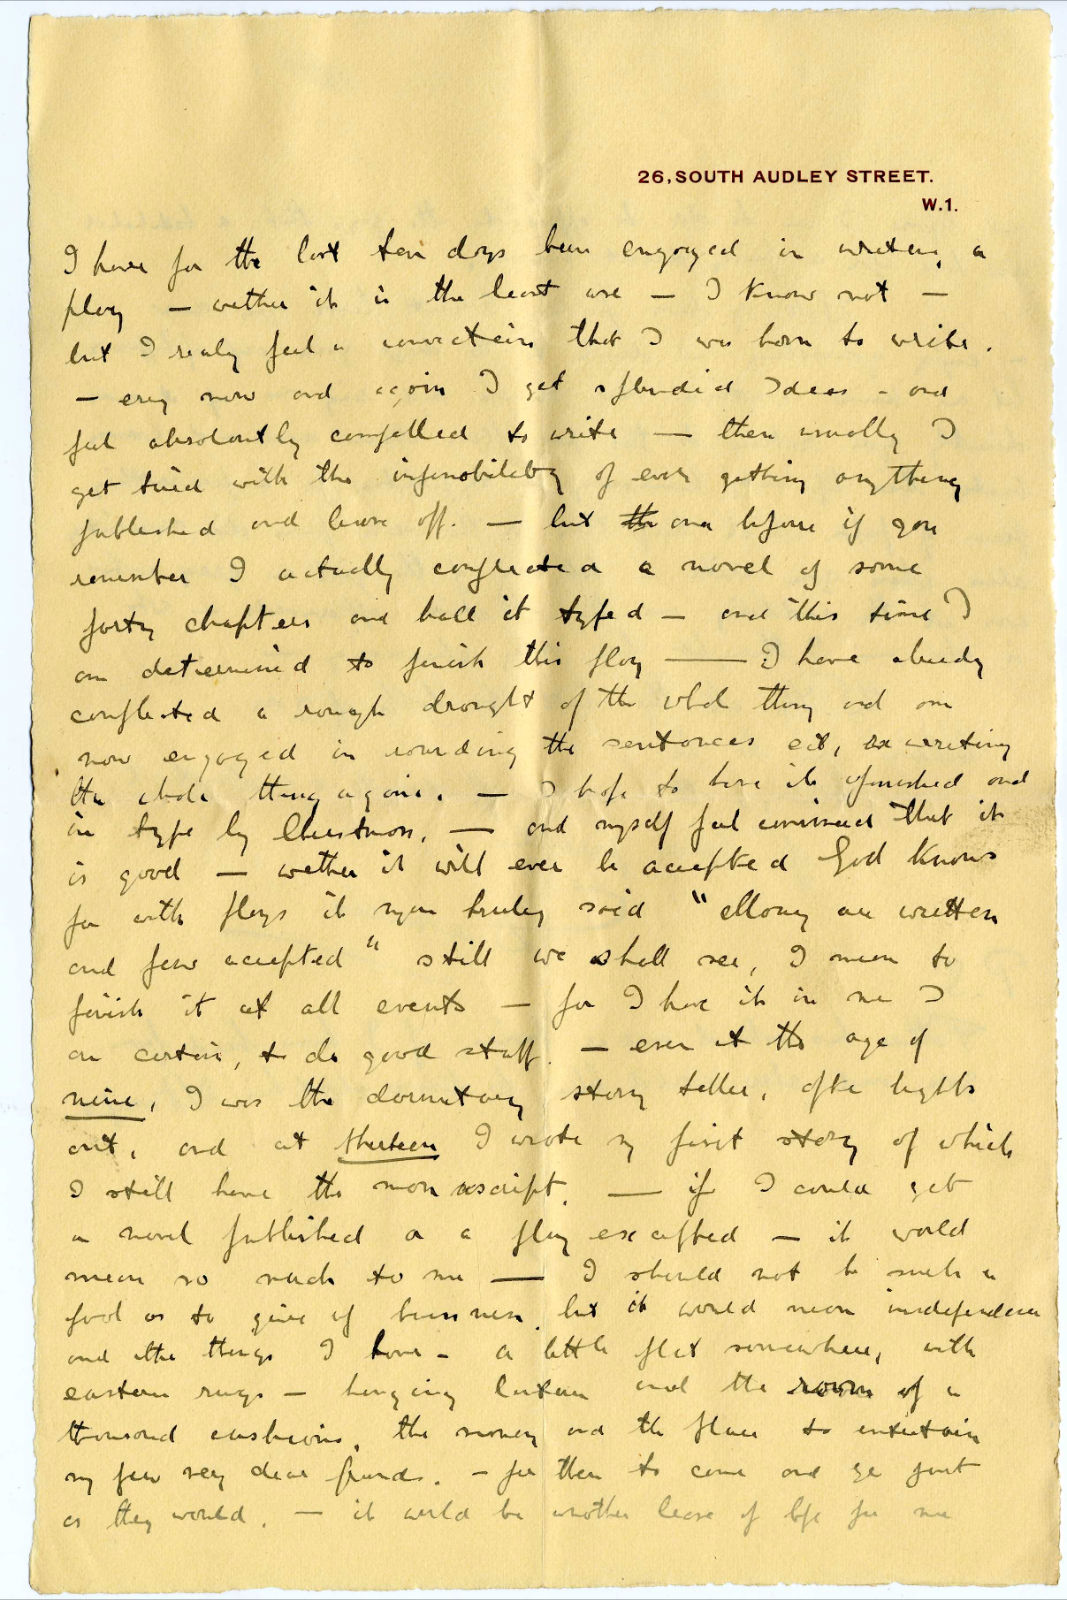 26, SOUTH AUDLEY STREET.
W.1.
I have for the last ten days been engaged in writing a
play — wether it is the least use — I know not —
but I realy feel a conviction that I was born to write.
— evry now and again I get splendid Ideas - and
feel absoloutly compelled to write — then usually I
get tired with the of ever getting anything
published and leave off. — but once before if you
remember I actually completed a novel of some
forty chapters and had it typed — and this time I
am determined to finish this play —— I have already
completed a rough draught of the whole thing and am
now engaged in rounding the sentences etc, writing
the whole thing again. — I hope to have it finished and
in type by Christmas. — and myself feel convinced that it
is good — wether it will ever be accepted God knows
for with plays it may truley said "Many are written
and few accepted" still we shall see, I mean to
finish it at all events — for I have it in me I
am certain, to do good stuff. — even at the age of
nine, I was the dormitary story teller, after lights
out, and at thirteen I wrote my first story of which
I still have the manuscript. — if I could get
a novel published or a play excepted — it would
mean so much to me — I should not be such a
fool as to give up business, but it would mean independence
and the things I love - a little flat somewhere, with
eastern rugs — hanging and the room of a
thousand cushions, the money and the place to entertain
my few very dear friends. - for them to come and go just
as they would. — it would be another lease of life for me